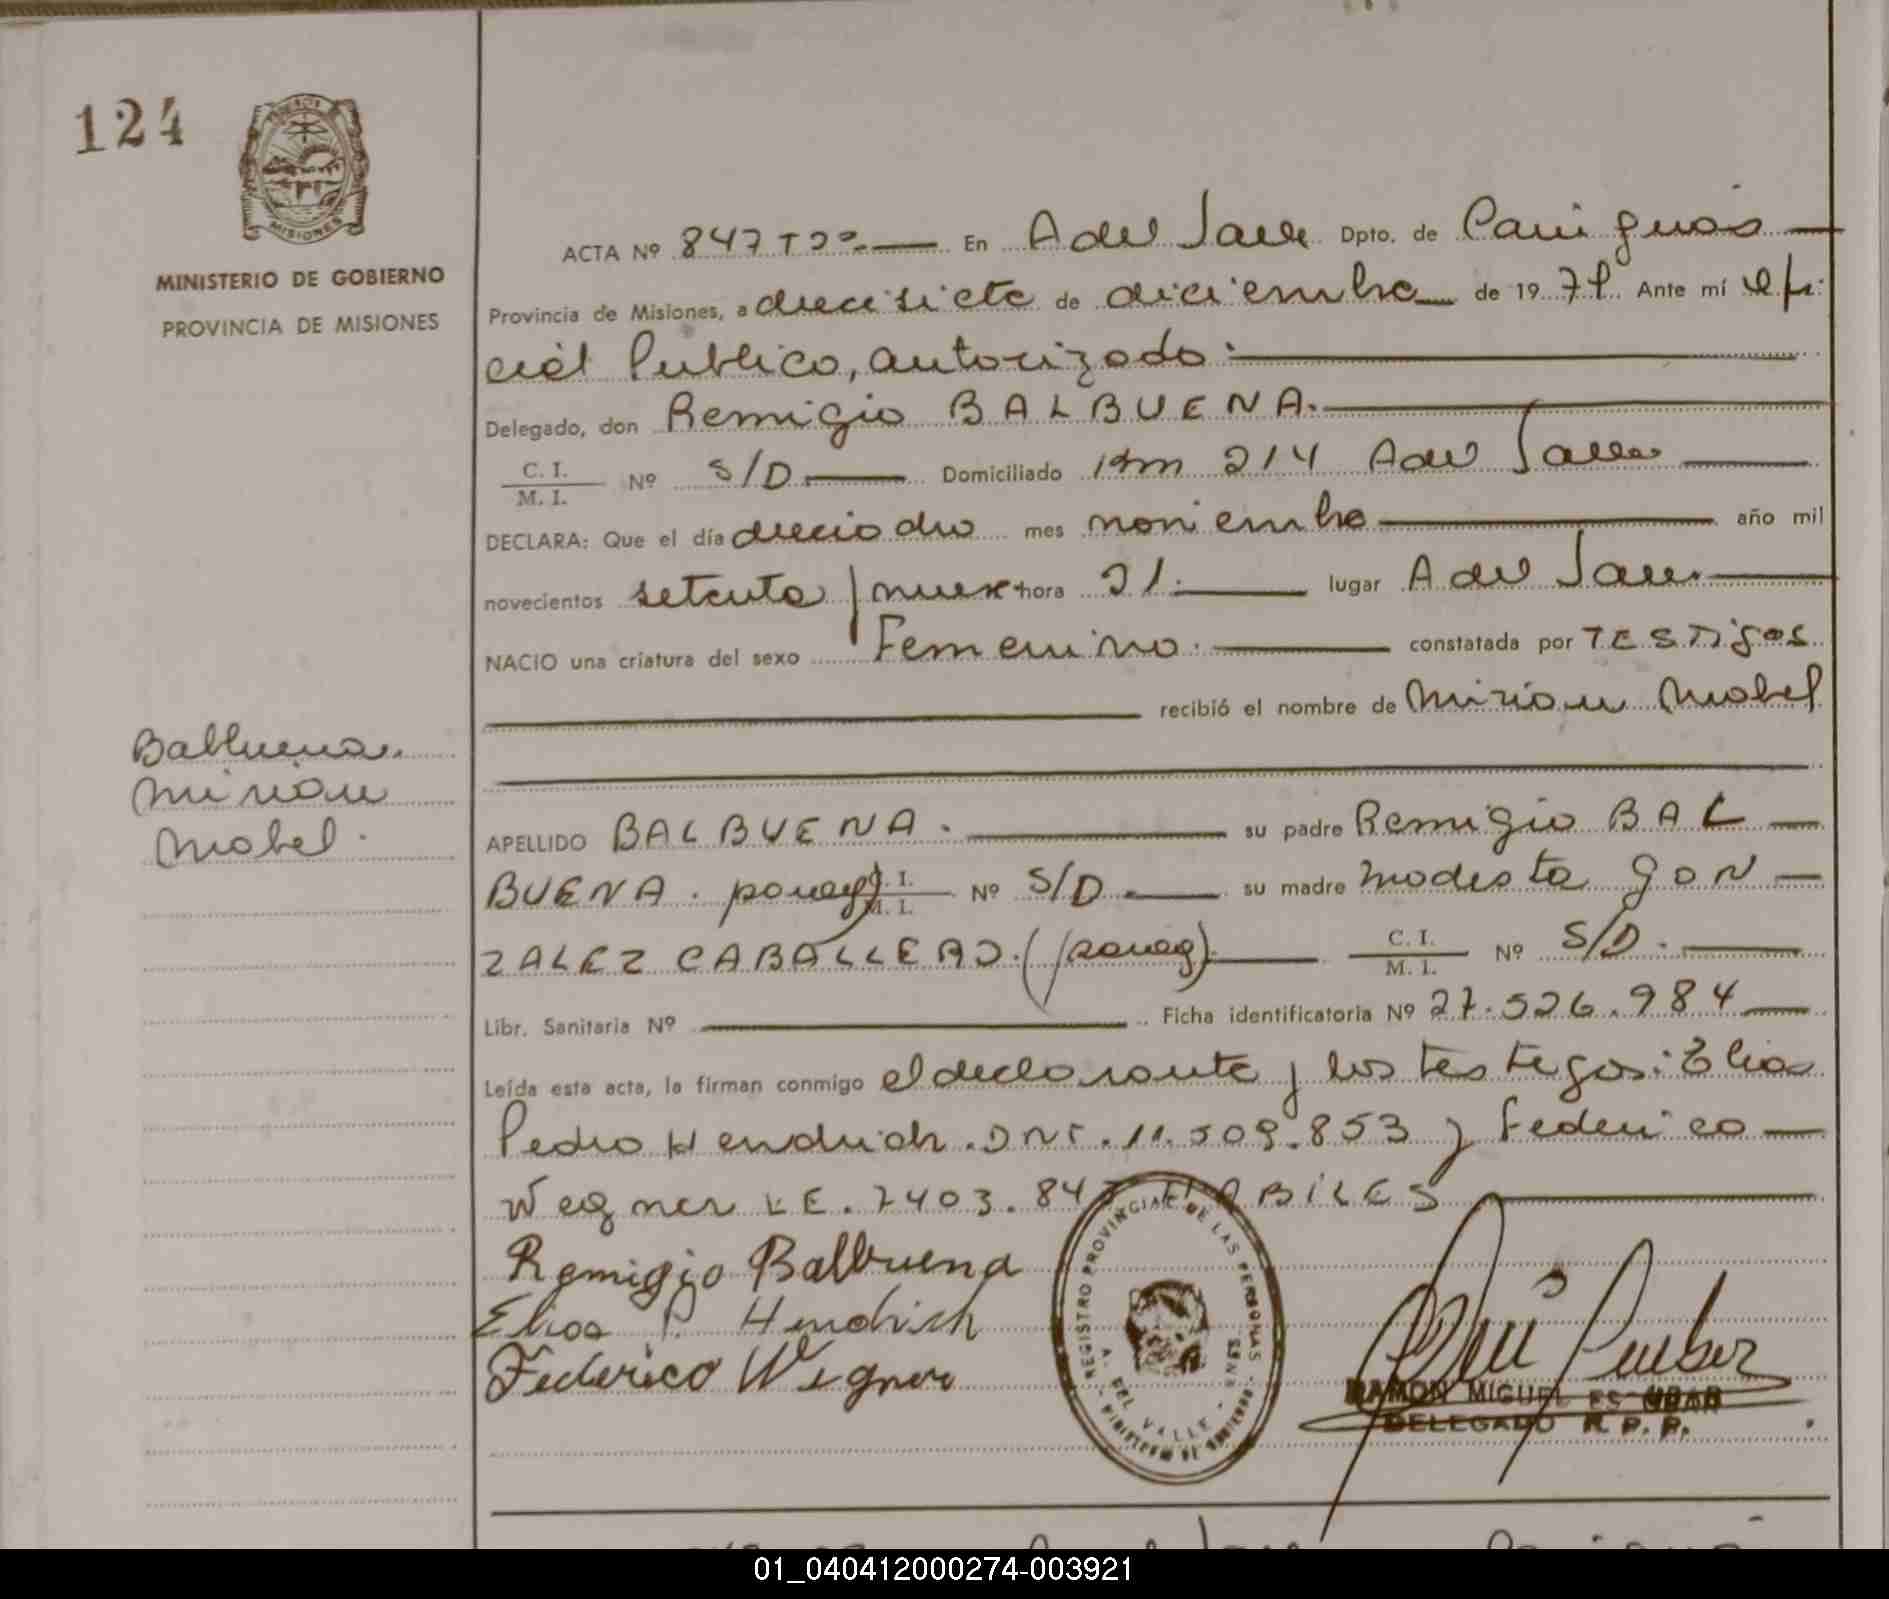 124
MISIONES
MINISTERIO DE GOBIERNO
PROVINCIA DE MISIONES
ACTA Nº 847 Tº 2º. En A del Valle Dpto. de Cainguás
Provincia de Misiones, a diecisiete de diciembre de 1979. Ante mí ofi-
cial Publico, autorizado.
Delegado, don Remigio BALBUENA.
C. I.
M. I. Nº S/D Domiciliado Km 214 A del Valle
DECLARA: Que el día dieciocho mes noviembre año mil
novecientos setenta y nueve hora 21. lugar A del Valle.
NACIO una criatura del sexo Femenino. constatada por TESTigos
recibió el nombre de Miriam Mabel
Balbuena.
Miriam
Mabel.
APELLIDO BALBUENA. su padre Remigio BAL
BUENA. parag) C. I.
M. I. Nº S/D. su madre Modesta GON
ZALEZ CABALLERO. (parag). C. I.
M. I. Nº S/D.
Libr. Sanitaria Nº Ficha identificatoria Nº 27.526.984
Leída esta acta, la firman conmigo el declarante y los testigos: Elias
Pedro Hendrich. DNI. 11.509.853 y Federico
Wegner LE. 7403.84 HABILES
Remigio Balbuena
Elias P. Hendrich
Federico Wegner
REGISTRO PROVINCIAL DE LAS PERSONAS
A. DEL VALLE - MNES
MINISTERIO DE GOBIERNO
RAMON MIGUEL ESCOBAR
DELEGADO R. P. P.
01_040412000274-003921